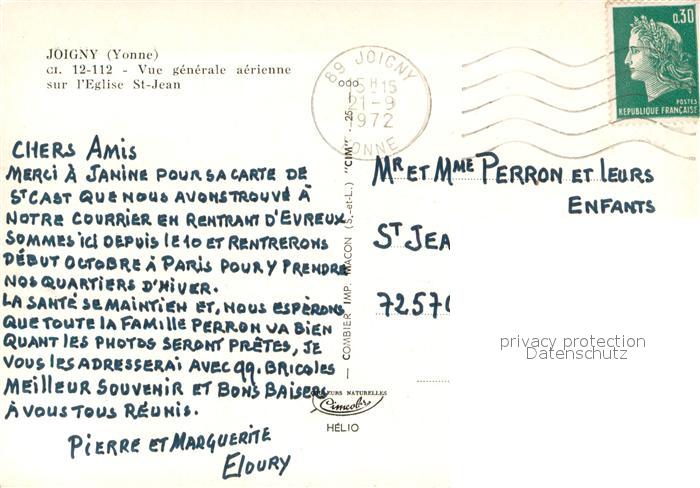 JOIGNY (Yonne)
CI. 12-112 - Vue générale aérienne
sur l'Eglise St-Jean
89 JOIGNY
15H15
21-9
1972
YONNE
0,30
POSTES
REPUBLIQUE FRANÇAISE
CHERS AMIS
MERCI À JANINE POUR SA CARTE DE
ST CAST QUE NOUS AVONS TROUVÉ À
NOTRE COURRIER EN RENTRANT D'EVREUX
SOMMES ICI DEPUIS LE 10 ET RENTRERONS
DÉBUT OCTOBRE À PARIS POUR Y PRENDRE
NOS QUARTIERS D'HIVER.
LA SANTÉ SE MAINTIEN ET, NOUS ESPÈRONS
QUE TOUTE LA FAMILLE PERRON VA BIEN
QUANT LES PHOTOS SERONT PRÊTES, JE
VOUS LES ADRESSERAI AVEC QQ. BRICOLES
MEILLEUR SOUVENIR ET BONS BAISERS
À VOUS TOUS RÉUNIS.
PIERRE ET MARGUERITE
ELOURY
COMBIER IMP. MACON (S.-et-L.) "CIM"
COULEURS NATURELLES
Cimcolor
HÉLIO
MR ET MME PERRON ET LEURS
ENFANTS
ST JEA
7257
privacy protection
Datenschutz